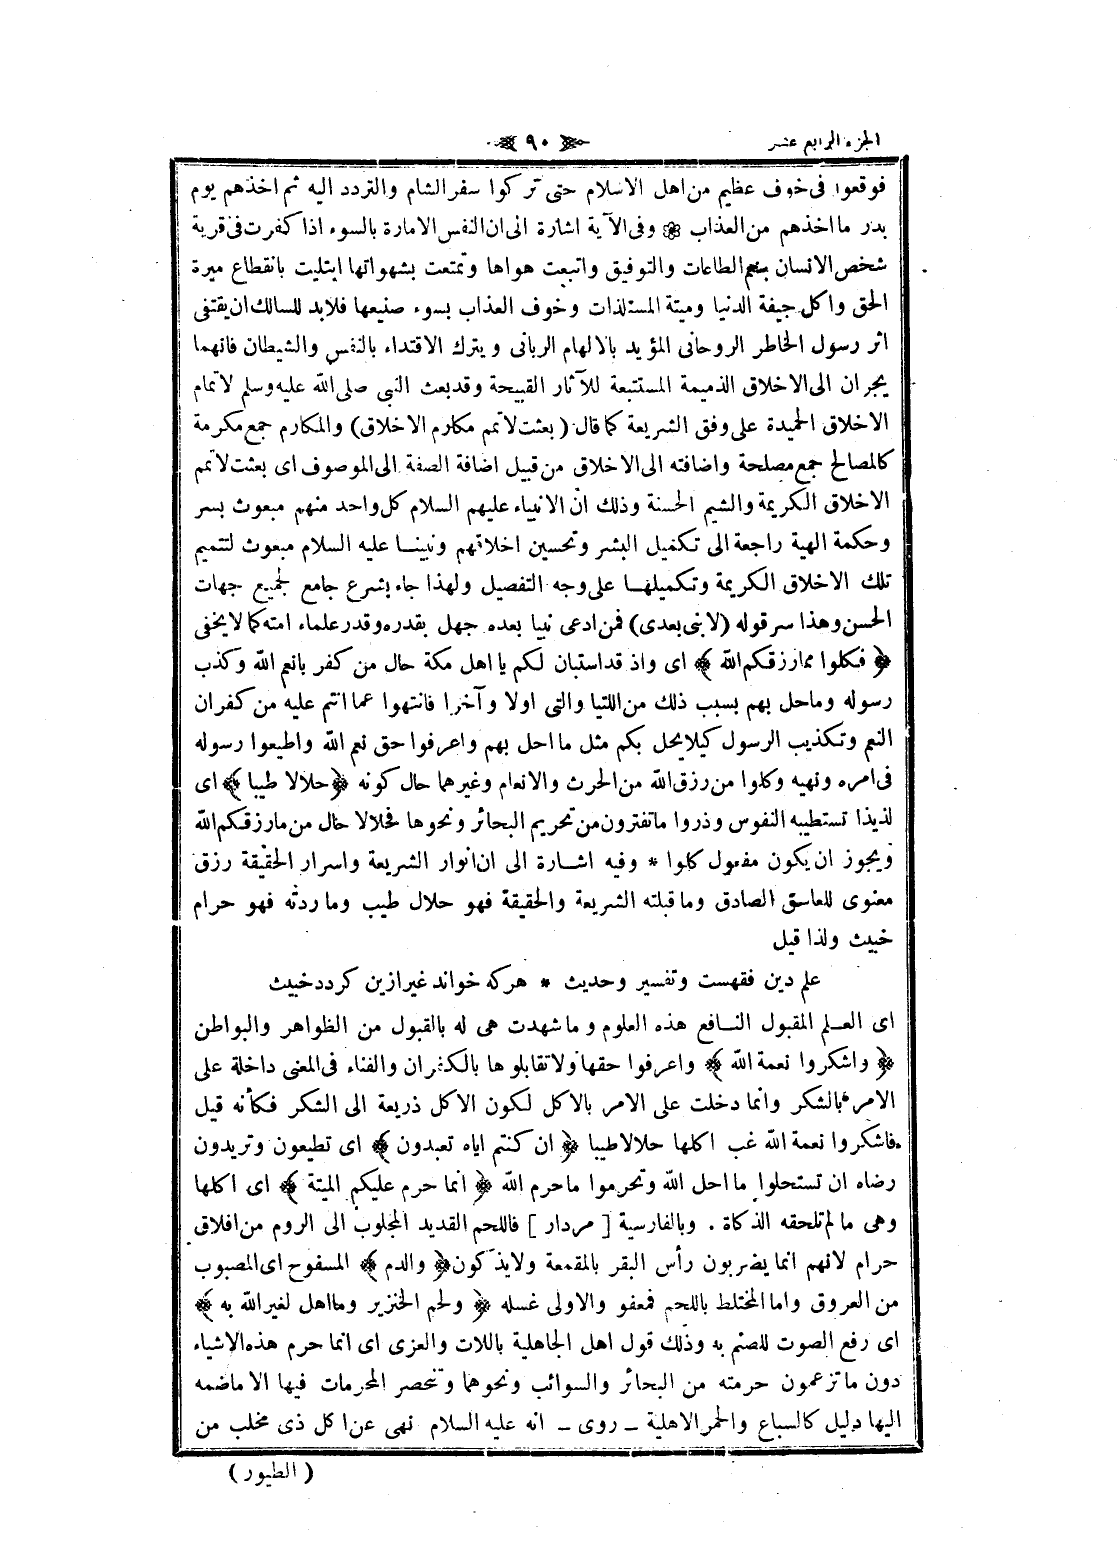 الجزء الرابع عشر
﴿ ٩٠ ﴾
فوقعوا فى خوف عظيم من اهل الاسلام حتى تركوا سفر الشام والتردد اليه ثم اخذهم يوم
بدر ما اخذهم من العذاب ❀ وفى الآية اشارة الى ان النفس الامارة بالسوء اذا كفرت فى قرية
شخص الانسان بنعم الطاعات والتوفيق واتبعت هواها وتمتعت بشهواتها ابتليت بانقطاع ميرة
الحق واكل جيفة الدنيا وميتة المستلذات وخوف العذاب بسوء صنيعها فلابد للسالك ان يقتفى
اثر رسول الخاطر الروحانى المؤيد بالالهام الربانى ويترك الاقتداء بالنفس والشيطان فانهما
يجران الى الاخلاق الذميمة المستتبعة للآثار القبيحة وقد بعث النبى صلى الله عليه وسلم لاتمام
الاخلاق الحميدة على وفق الشريعة كما قال (بعثت لاتمم مكارم الاخلاق) والمكارم جمع مكرمة
كالمصالح جمع مصلحة واضافته الى الاخلاق من قبيل اضافة الصفة الى الموصوف اى بعثت لاتمم
الاخلاق الكريمة والشيم الحسنة وذلك ان الانبياء عليهم السلام كل واحد منهم مبعوث بسر
وحكمة الهية راجعة الى تكميل البشر وتحسين اخلاقهم ونبينا عليه السلام مبعوث لتتميم
تلك الاخلاق الكريمة وتكميلها على وجه التفصيل ولهذا جاء بشرع جامع لجميع جهات
الحسن وهذا سر قوله (لا نبى بعدى) فمن ادعى نبيا بعده جهل بقدره وقدر علماء امته كما لا يخفى
﴿ فكلوا مما رزقكم الله ﴾ اى واذ قد استبان لكم يا اهل مكة حال من كفر بانعم الله وكذب
رسوله وما حل بهم بسبب ذلك من اللتيا والتى اولا وآخرا فانتهوا عما انتم عليه من كفران
النعم وتكذيب الرسول كيلا يحل بكم مثل ما احل بهم واعرفوا حق نعم الله واطيعوا رسوله
فى امره ونهيه وكلوا من رزق الله من الحرث والانعام وغيرهما حال كونه ﴿ حلالا طيبا ﴾ اى
لذيذا تستطيبه النفوس وذروا ما تفترون من تحريم البحائر ونحوها فحلالا حال من ما رزقكم الله
ويجوز ان يكون مفعول كلوا * وفيه اشارة الى ان انوار الشريعة واسرار الحقيقة رزق
معنوى للعاسق الصادق وما قبلته الشريعة والحقيقة فهو حلال طيب وما ردته فهو حرام
خبيث ولذا قيل
علم دين فقهست وتفسير وحديث * هركه خواند غير ازين كردد خبيث
اى العلم المقبول النافع هذه العلوم وما شهدت هى له بالقبول من الظواهر والبواطن
﴿ واشكروا نعمة الله ﴾ واعرفوا حقها ولا تقابلوها بالكفران والفاء فى المعنى داخلة على
الامر بالشكر وانما دخلت على الامر بالاكل لكون الاكل ذريعة الى الشكر فكأنه قيل
فاشكروا نعمة الله غب اكلها حلالا طيبا ﴿ ان كنتم اياه تعبدون ﴾ اى تطيعون وتريدون
رضاه ان تستحلوا ما احل الله وتحرموا ما حرم الله ﴿ انما حرم عليكم الميتة ﴾ اى اكلها
وهى ما لم تلحقه الذكاة . وبالفارسية [ مردار ] فاللحم القديد المجلوب الى الروم من افلاق
حرام لانهم انما يضربون رأس البقر بالمقمعة ولا يذكون ﴿ والدم ﴾ المسفوح اى المصبوب
من العروق واما المختلط باللحم فمعفو والاولى غسله ﴿ ولحم الخنزير وما اهل لغير الله به ﴾
اى رفع الصوت للصنم به وذلك قول اهل الجاهلية باللات والعزى اى انما حرم هذه الاشياء
دون ما تزعمون حرمته من البحائر والسوائب ونحوها وتنحصر المحرمات فيها الا ما ضمه
اليها دليل كالسباع والحمر الاهلية ـ روى ـ انه عليه السلام نهى عن اكل ذى مخلب من
(الطيور)